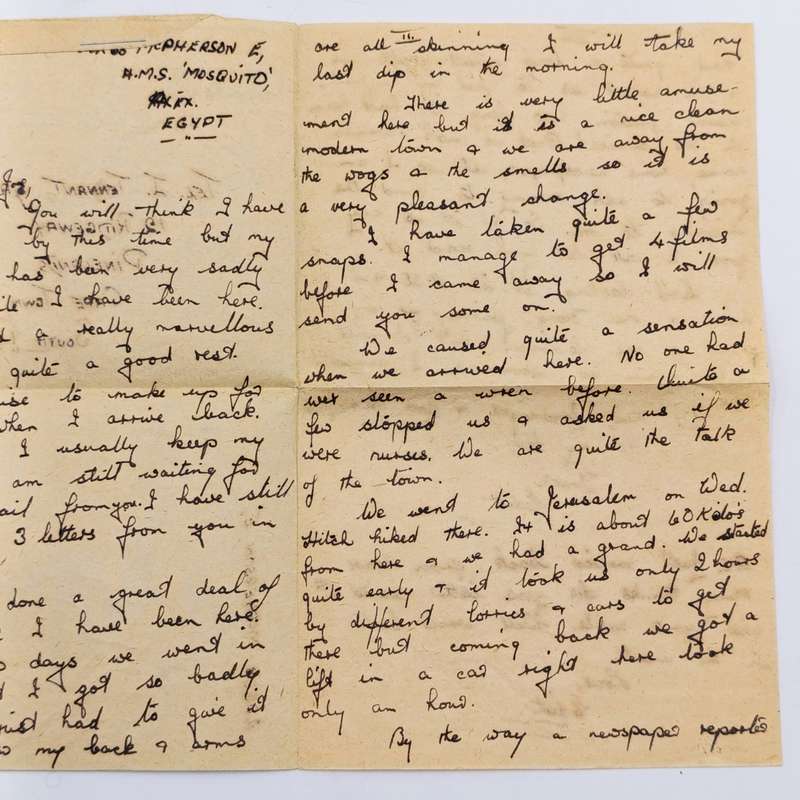 MCPHERSON E,
H.M.S. 'MOSQUITO',
ALEX.
EGYPT
You will think I have
by this time but my
has been very sadly
I have been here.
a really marvellous
quite a good rest.
to make up for
when I arrive back.
I usually keep my
am still waiting for
from you. I have still
3 letters from you in
done a great deal of
I have been here.
days we went in
I got so badly
had to give it
my back & arms
III.
are all skinning I will take my
last dip in the morning.
There is very little amuse-
ment here but it is a nice clean
modern town & we are away from
the wogs & the smells so it is
a very pleasant change.
I have taken quite a few
snaps. I manage to get 4 films
before I came away so I will
send you some on.
We caused quite a sensation
when we arrived here. No one had
ever seen a wren before. Quite a
few stopped us & asked us if we
were nurses. We are quite the talk
of the town.
We went to Jerusalem on Wed.
Hitch hiked there. It is about 60 Kelo's
from here & we had a grand. We started
quite early & it took us only 2 hours
by different lorries & cars to get
there but coming back we got a
lift in a car right here took
only an hour.
By the way a newspaper reporter